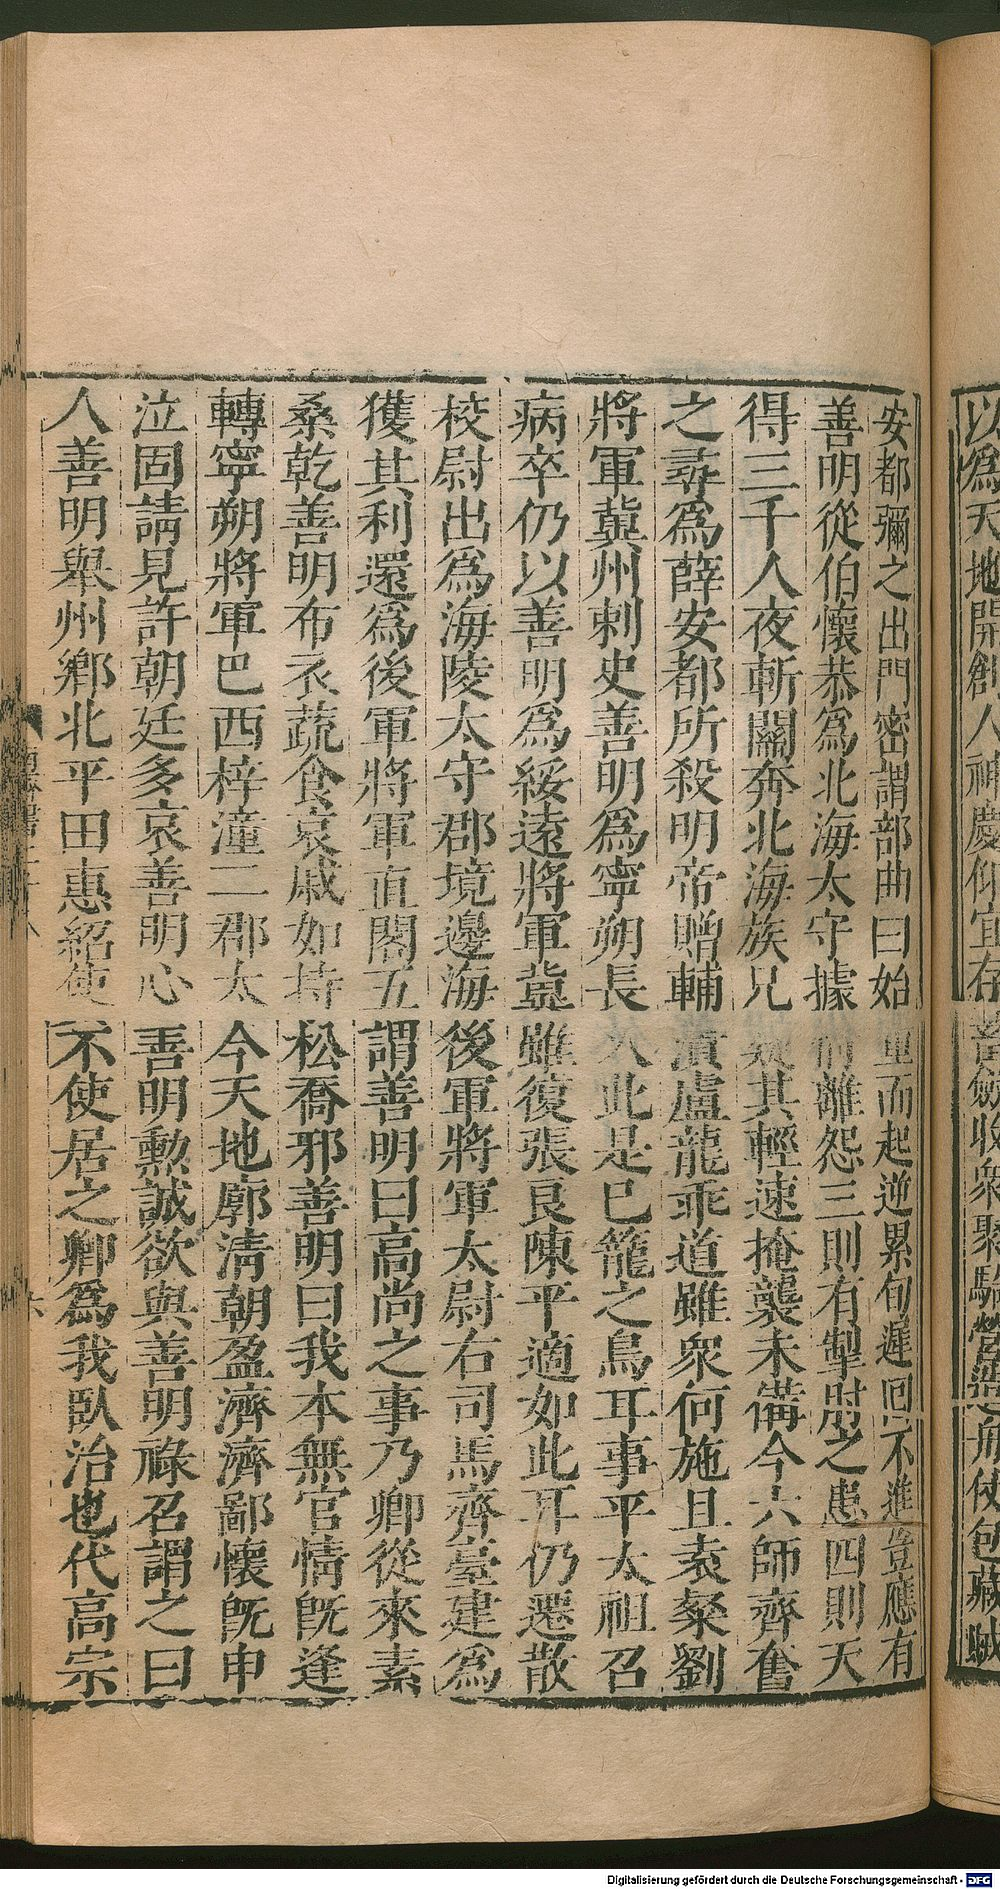 以爲天地開創人神慶仰宜存蓄斂收衆聚騎營造舟仗包藏賊
安都彌之出門密謂部曲曰始重而起逆累旬遲回不進豈應有
善明從伯懷恭爲北海太守據情離怨三則有掣肘之患四則天
得三千人夜斬關奔北海族兄疑其輕速掩襲未備今六師齊奮
之尋爲薛安都所殺明帝贈輔瀆盧龍乖道雖衆何施且袁粲劉
將軍冀州刺史善明爲寧朔長久此是已籠之鳥耳事平太祖召
病卒仍以善明爲綏遠將軍冀雖復張良陳平適如此耳仍遷散
校尉出爲海陵太守郡境邊海後軍將軍太尉右司馬齊臺建爲
獲其利還爲後軍將軍直閤五謂善明曰高尚之事乃卿從來素
桑乾善明布衣蔬食哀戚如持松喬邪善明曰我本無官情既逢
轉寧朔將軍巴西梓潼二郡太今天地廓清朝盈濟濟鄙懷既申
泣固請見許朝廷多哀善明心善明勳誠欲與善明祿召謂之曰
人善明舉州鄉北平田惠紹使不使居之卿爲我臥治也代高宗
Digitalisierung gefördert durch die Deutsche Forschungsgemeinschaft - DFG